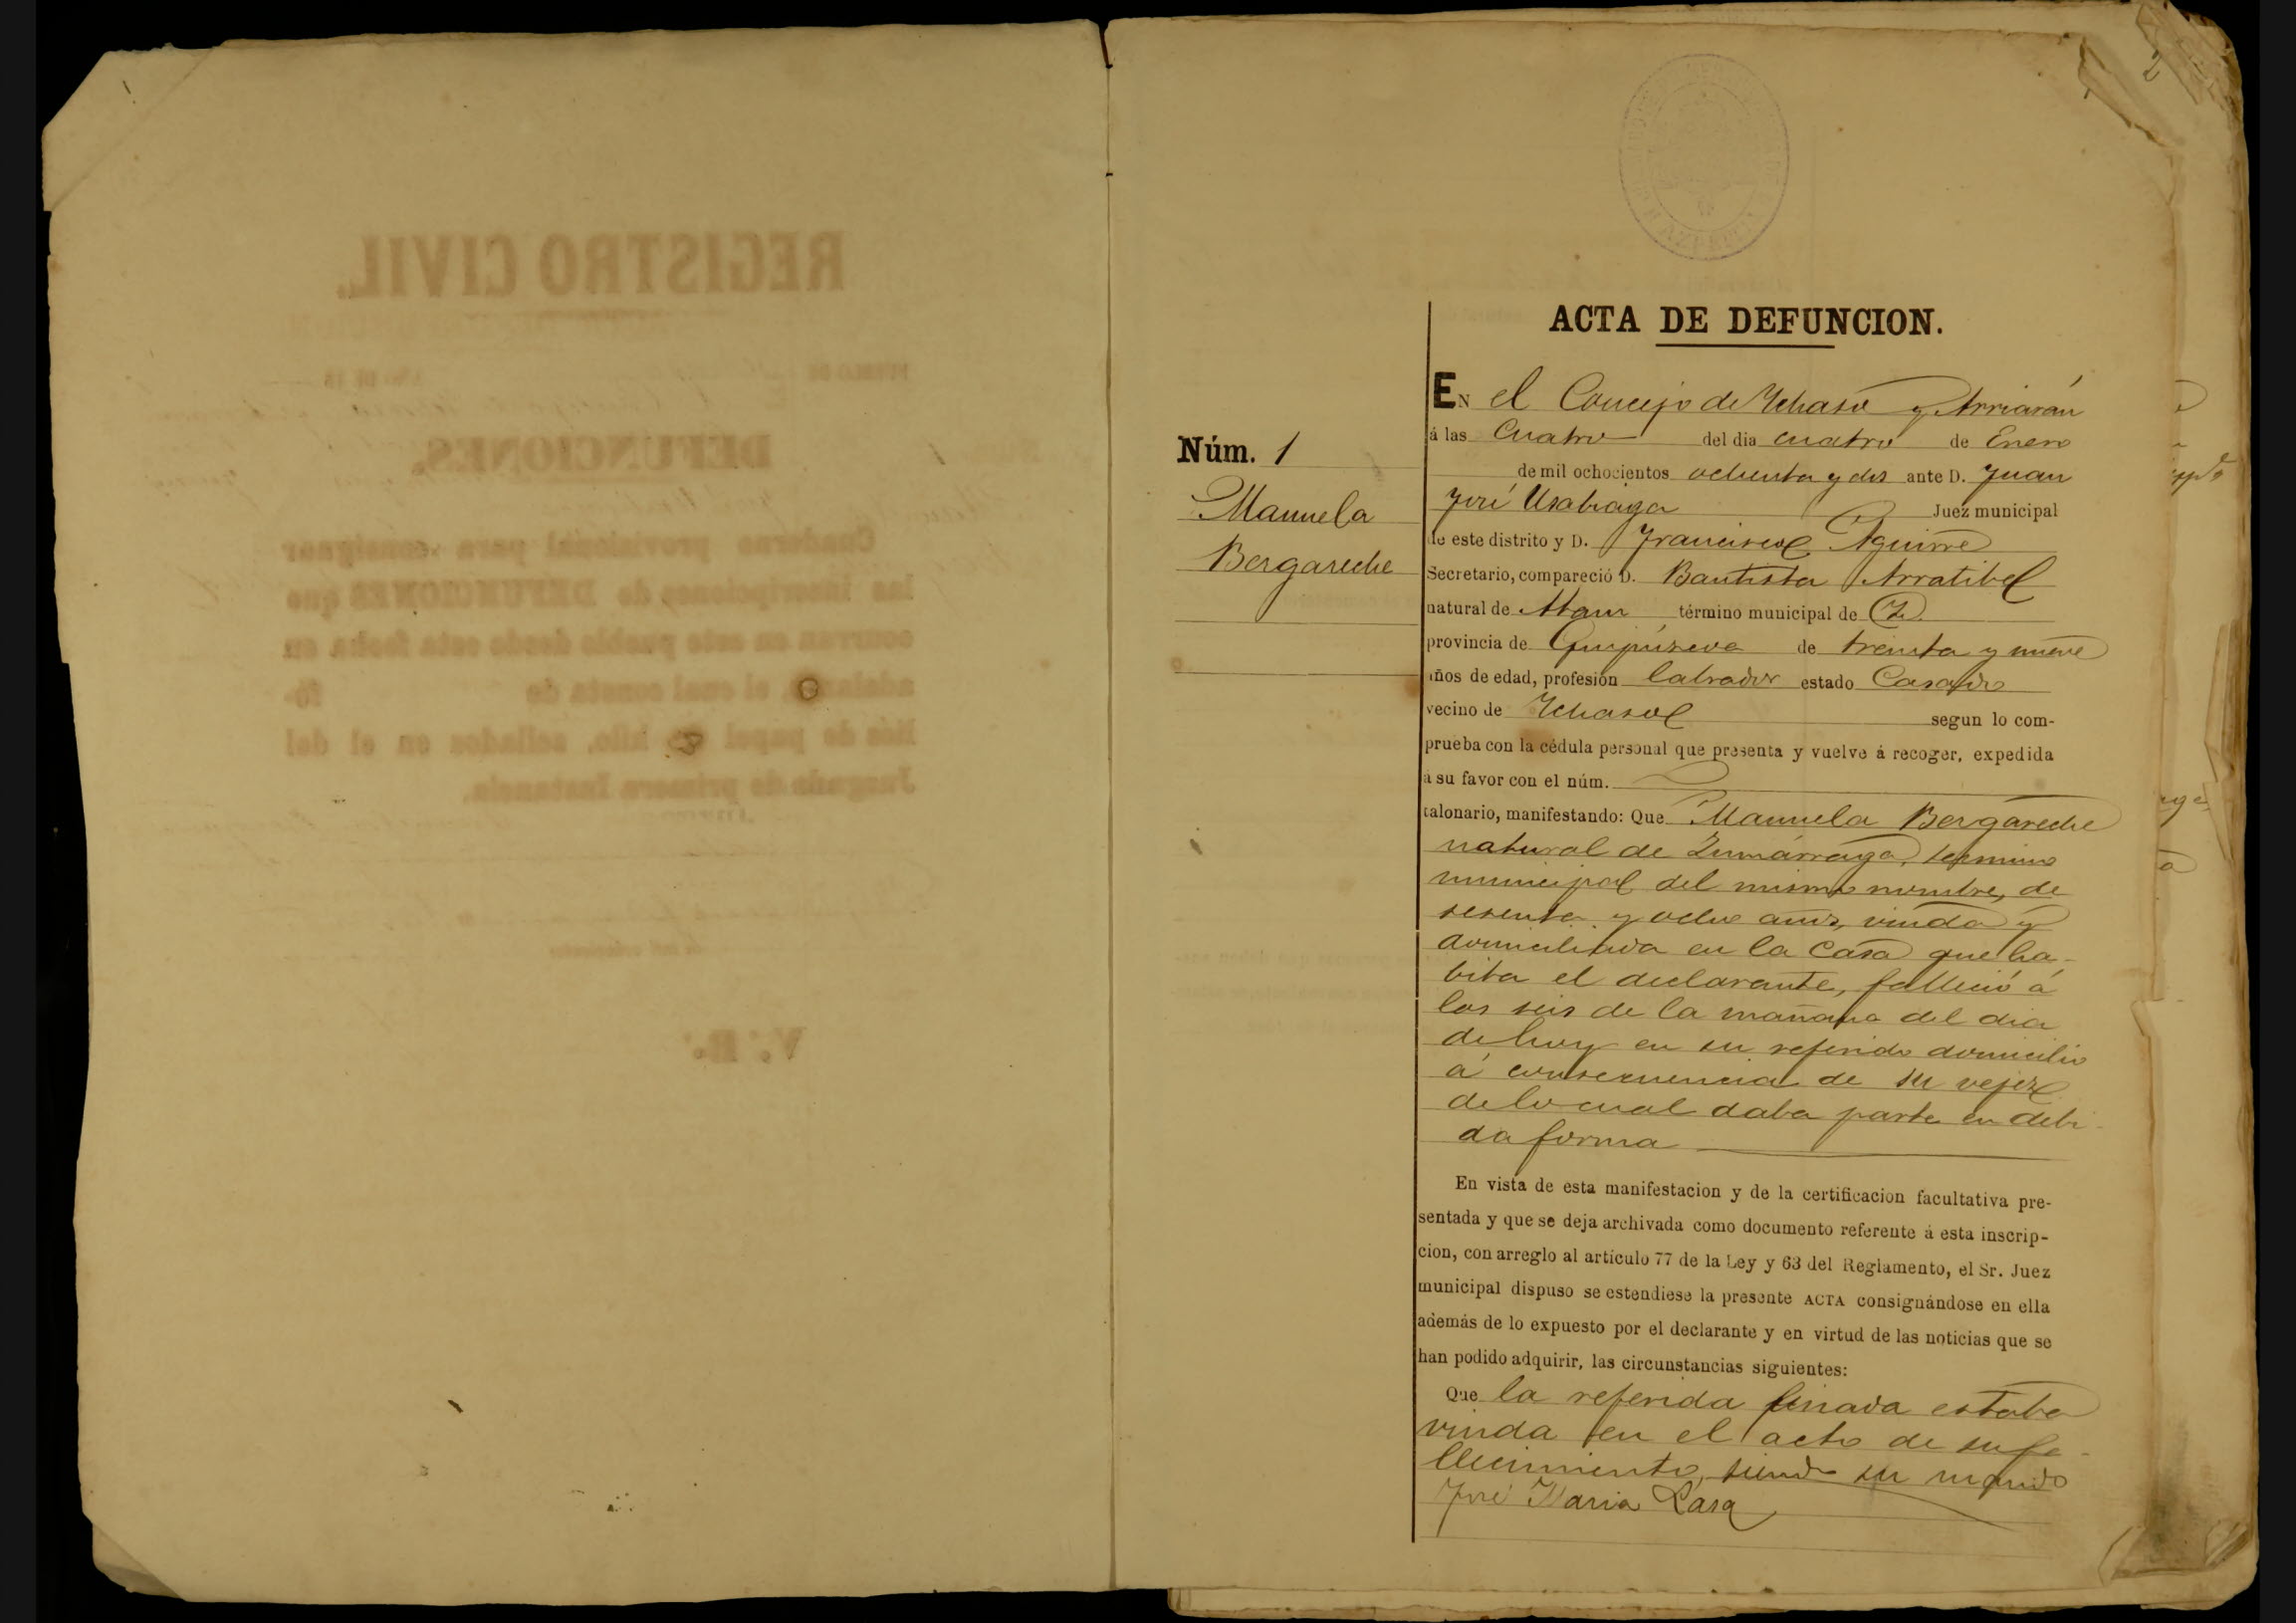 REGISTRO CIVIL.
PUEBLO DE
AÑO DE 18
DEFUNCIONES.
Cuaderno provisional para consignar
las inscripciones de DEFUNCIONES que
ocurran en este pueblo desde esta fecha en
adelante, el cual consta de fo-
lios de papel de hilo, sellados en el del
Juzgado de primera Instancia.
V.º B.º
ACTA DE DEFUNCION.
Núm. 1
Manuela
Bergareche
EN el Concejo de Ychaso y Arriarán
á las Cuatro del dia cuatro de Enero
de mil ochocientos ochenta y dos ante D. Juan
José Usabiaga Juez municipal
de este distrito y D. Francisco Aguirre
Secretario, compareció D. Bautista Arratibel
natural de Ataun término municipal de id.
provincia de Guipúzcoa de treinta y nueve
años de edad, profesión labrador estado Casado
vecino de Ychaso segun lo com-
prueba con la cédula personal que presenta y vuelve á recoger, expedida
á su favor con el núm.
talonario, manifestando: Que Manuela Bergareche
natural de Zumárraga, termino
municipal del mismo nombre, de
sesenta y ocho años, viuda y
domiciliada en la Casa que ha-
bita el declarante, falleció á
las seis de la mañana del dia
de hoy en su referido domicilio
á consecuencia de su vejez
de lo cual daba parte en debi-
da forma
En vista de esta manifestacion y de la certificacion facultativa pre-
sentada y que se deja archivada como documento referente á esta inscrip-
cion, con arreglo al artículo 77 de la Ley y 63 del Reglamento, el Sr. Juez
municipal dispuso se estendiese la presente ACTA consignándose en ella
además de lo expuesto por el declarante y en virtud de las noticias que se
han podido adquirir, las circunstancias siguientes:
Que la referida finada estaba
viuda en el acto de su fa-
llecimiento, siendo su marido
José Maria Lasa